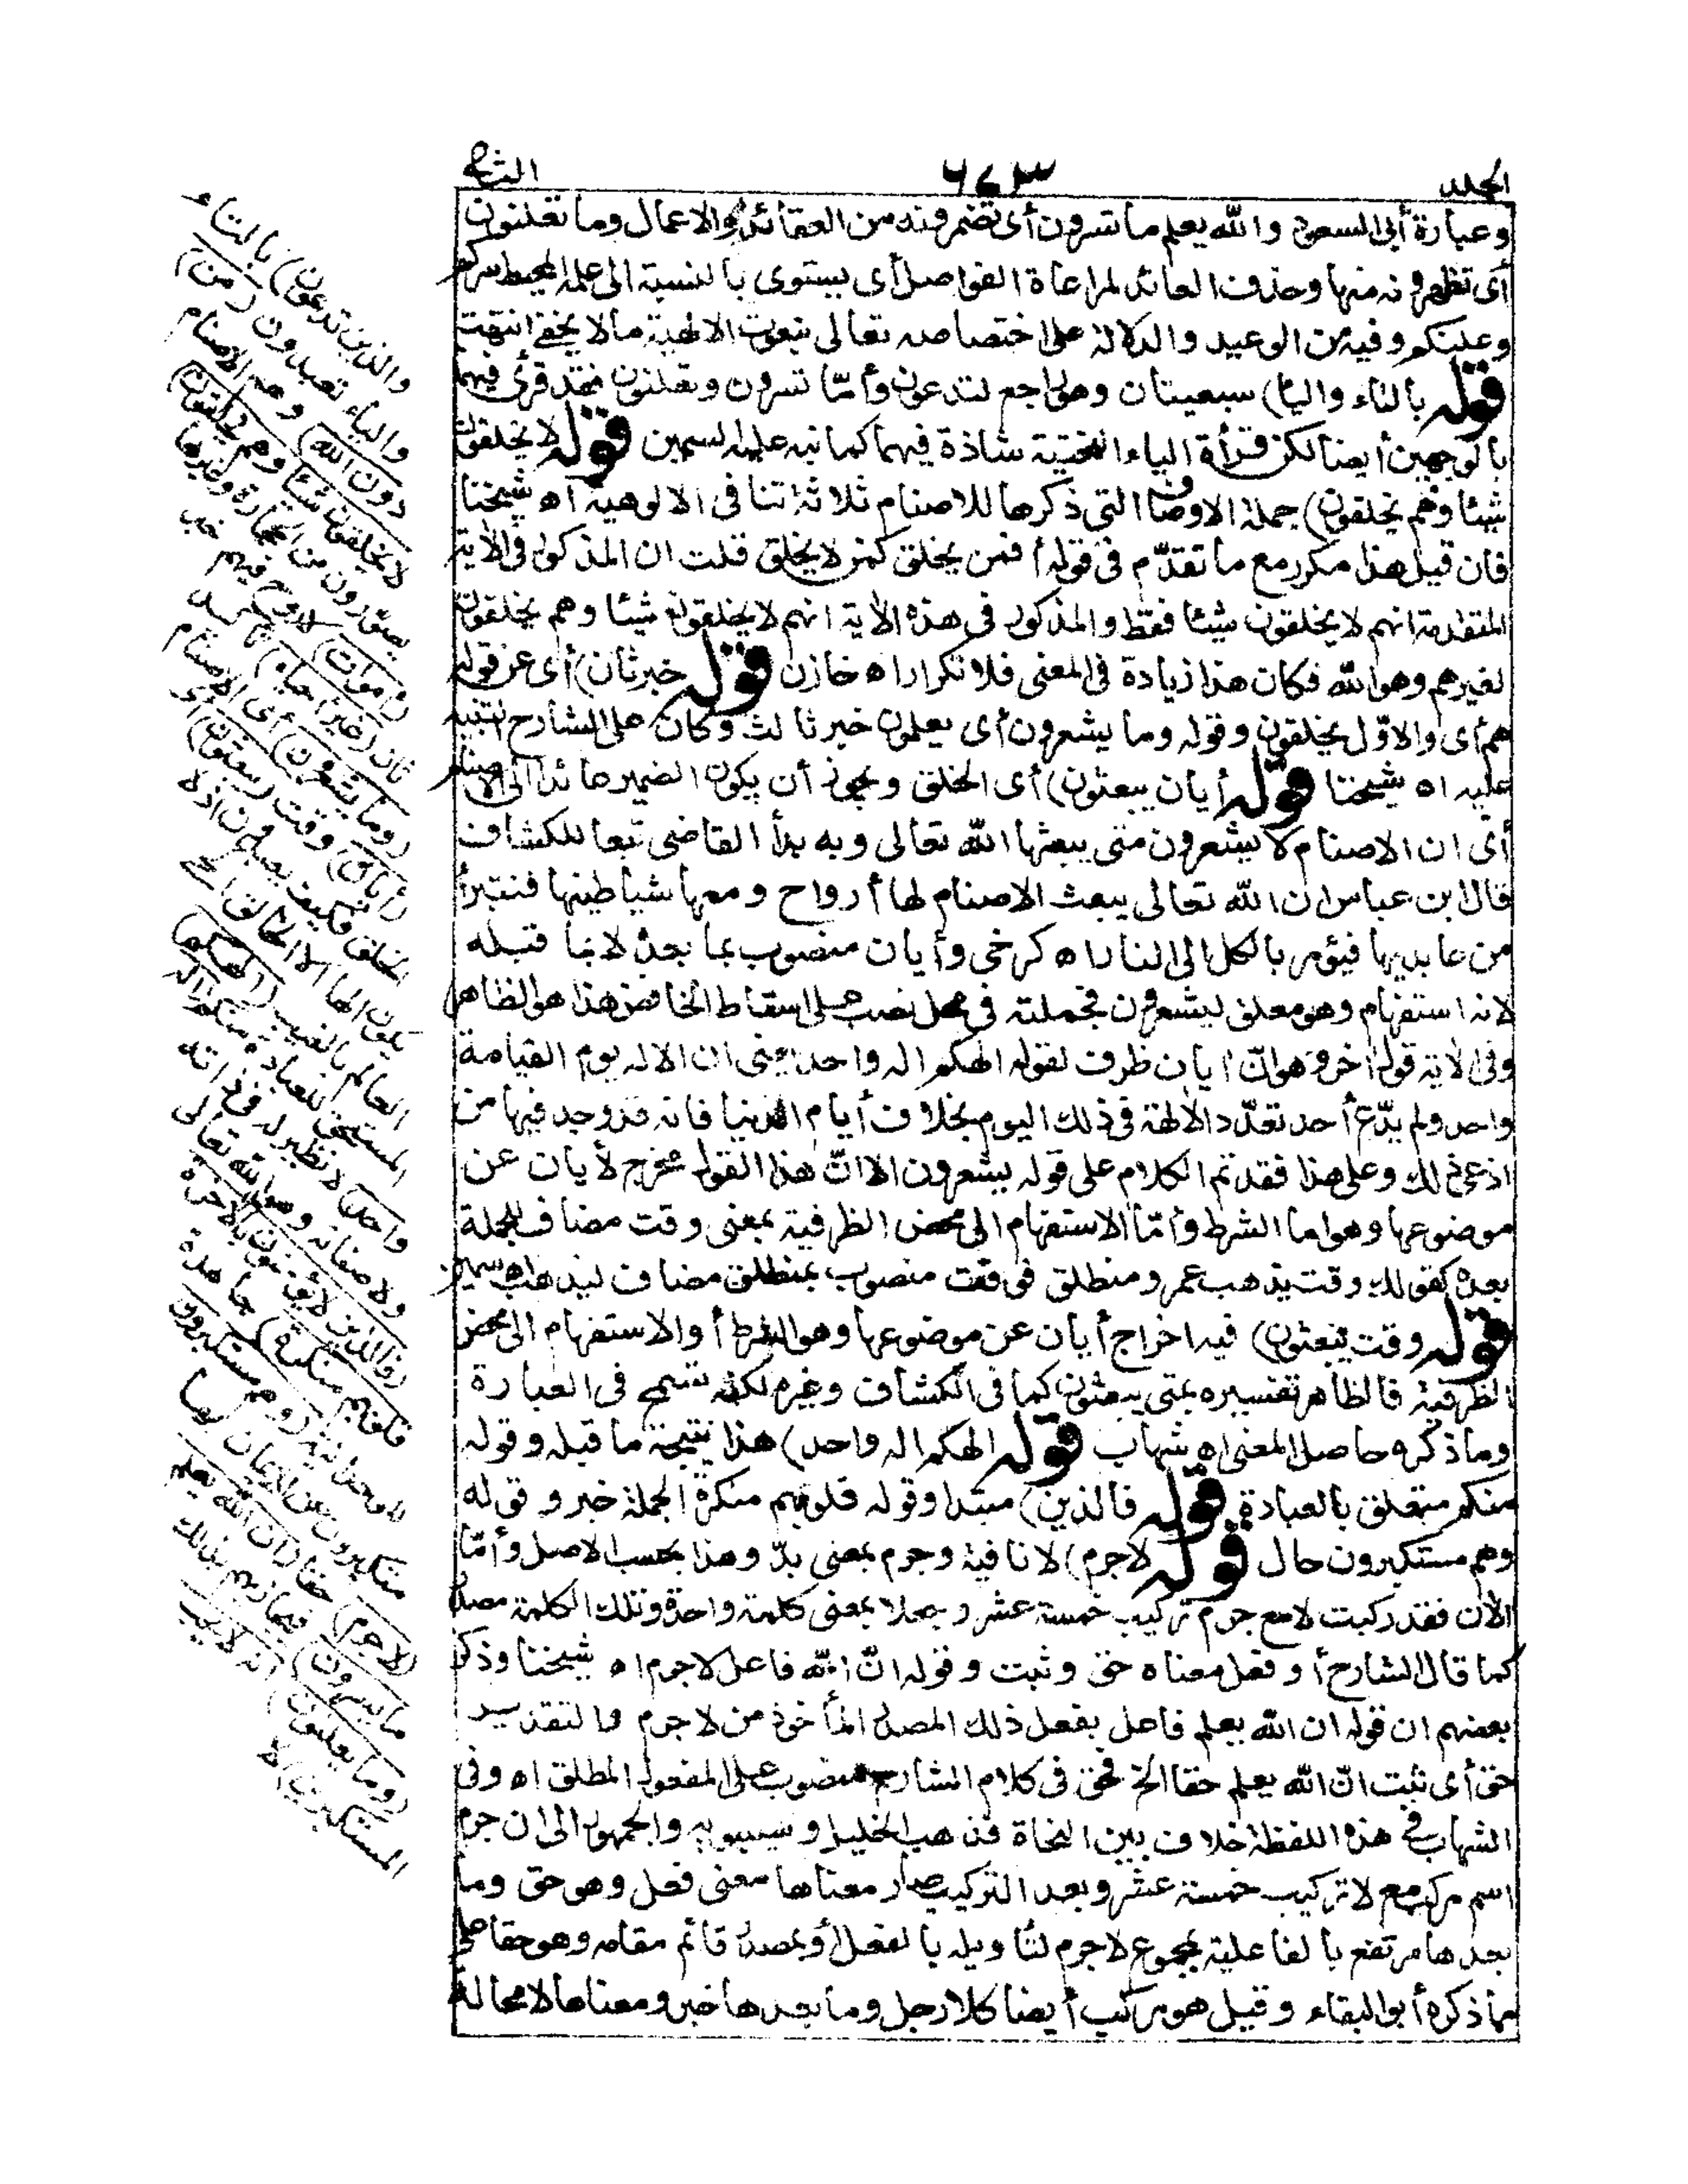 الجلد ٦٧٣ الثانى
وعبارة أبى السعود والله يعلم ما تسرون أى تضمرونه من العقائد والاعمال وما تعلنون
أى تظهرونه منها وحذف العائد لمراعاة الفواصل أى يستوى بالنسبة الى علمه المحيط سركم
وعلنكم وفيه من الوعيد والدلالة على اختصاصه تعالى بنعوت الالهية ما لا يخفى انتهت
قوله بالتاء والياء) سبعيتان وهو راجع لتدعون وأمّا تسرون وتعلنون فقد قرئ فيهما
بالوجهين أيضا لكن قرأة الياء التحتية شاذة فيهما كما نبه عليه السمين قوله لا يخلقون
شيئا وهم يخلقون) جملة الاوصاف التى ذكرها للاصنام ثلاثة تنافى الالوهية اه شيخنا
فان قيل هذا مكرر مع ما تقدّم فى قوله أفمن يخلق كمن لا يخلق قلت ان المذكور فى الأية
المتقدمة انهم لا يخلقون شيئا فقط والمذكور فى هذه الأية انهم لا يخلقون شيئا وهم يخلقون
لغيرهم وهو الله فكان هذا زيادة فى المعنى فلا تكرار اه خازن قوله خبر ثان) أى عن قوله
هم أى والاوّل يخلقون وقوله وما يشعرون أى يعلمون خبر ثالث وكان على الشارح التنبيه
عليه اه شيخنا قوله أيان يبعثون) أى الخلق ويجوز أن يكون الضمير عائدا الى الاصنام
أى ان الاصنام لا يشعرون متى يبعثها الله تعالى وبه بدأ القاضى تبعا للكشاف
قال ابن عباس ان الله تعالى يبعث الاصنام لها أرواح ومعها شياطينها فتتبرأ
من عابديها فيؤمر بالكل الى النار اه كرخى وأيان منصوب بما بعدٗ لا بما قبله
لانه استفهام وهو معلق ليشعرون فجملته فى محل نصب على اسقاط الخافض هذا هو الظاهر
وفى الأية قول أخر وهو انّ أيان ظرف لقوله الهكم اله واحد يعنى ان الاله يوم القيامة
واحد ولم يدّع أحد تعدّد الألهة فى ذلك اليوم بخلاف أيام الدنيا فانه قد وجد فيها من
ادعى ذلك وعلى هذا فقد تم الكلام على قوله يشعرون الا انّ هذا القول مخرج لأيان عن
موضوعها وهو اما الشرط وأمّا الاستفهام الى محض الظرفية بمعنى وقت مضاف للجملة
بعده كقولك وقت يذهب عمرو منطلق فوقت منصوب بمنطلق مضاف ليذهب اه سمين
قوله وقت يبعثون) فيه اخراج أيان عن موضوعها وهو الشرط أو الاستفهام الى محض
الظرفية فالظاهر تفسيره بمتى يبعثون كما فى الكشاف وغيره لكنه تسمح فى العبارة
وما ذكره حاصل المعنى اه شهاب قوله الهكم اله واحد) هذا نتيجة ما قبله وقوله
منكم متعلق بالعبادة قوله فالذين) مبتدا وقوله قلوبهم منكرة الجملة خبر وقوله
وهم مستكبرون حال قوله لاجرم) لا نافية وجرم بمعنى بدّ وهذا بحسب الاصل وأمّا
الأن فقد ركبت لا مع جرم تركيب خمسة عشر وجعلا بمعنى كلمة واحدة وتلك الكلمة مصدر
كما قال الشارح أو فعل معناه حق وثبت وقوله انّ الله فاعل لاجرم اه شيخنا وذكر
بعضهم ان قوله ان الله يعلم فاعل بفعل ذلك المصدر المأخوذ من لاجرم والتقدير
حق أى ثبت انّ الله يعلم حقا الخ فحق فى كلام الشارح منصوب على المفعول المطلق اه وفى
الشهاب فى هذه اللفظة خلاف بين النحاة فذهب الخليل وسيبويه والجمهور الى ان جرم
اسم مركب مع لا تركيب خمسة عشر وبعد التركيب صار معناها معنى فعل وهو حق وما
بعدها مرتفع بالفاعلية بمجموع لاجرم لتأويله بالفعل أو بمصدر قائم مقامه وهو حقا على
ما ذكره أبو البقاء وقيل هو مركب أيضا كلا رجل وما بعدها خبر ومعناها لا محالة
والذين تدعون) بالتاء
والياء تعبدون (من
دون الله) وهم الاصنام
لا يخلقون شيئا وهم يخلقون)
يصورون من الحجارة وغيرها
(اموات) لا روح فيهم خبر
ثان (غير احياء)
(وما يشعرون) أى الاصنام
(أيان) وقت (يبعثون) أى
الخلق فكيف يعبدون اذ لا
يكون الها الا الخالق الحى
العالم بالغيب (الهكم)
المستحق للعبادة منكم (اله
واحد) لا نظير له فى ذاته
ولا صفاته وهو الله تعالى
(فالذين لا يؤمنون بالاخرة
قلوبهم منكرة) جاحدة
للوحدانية (وهم مستكبرون)
متكبرون عن الايمان بها
(لاجرم) حقا (ان الله يعلم
ما يسرون
وما يعلنون) فيجازيهم بذلك
(انه لا يحب
المستكبرين)